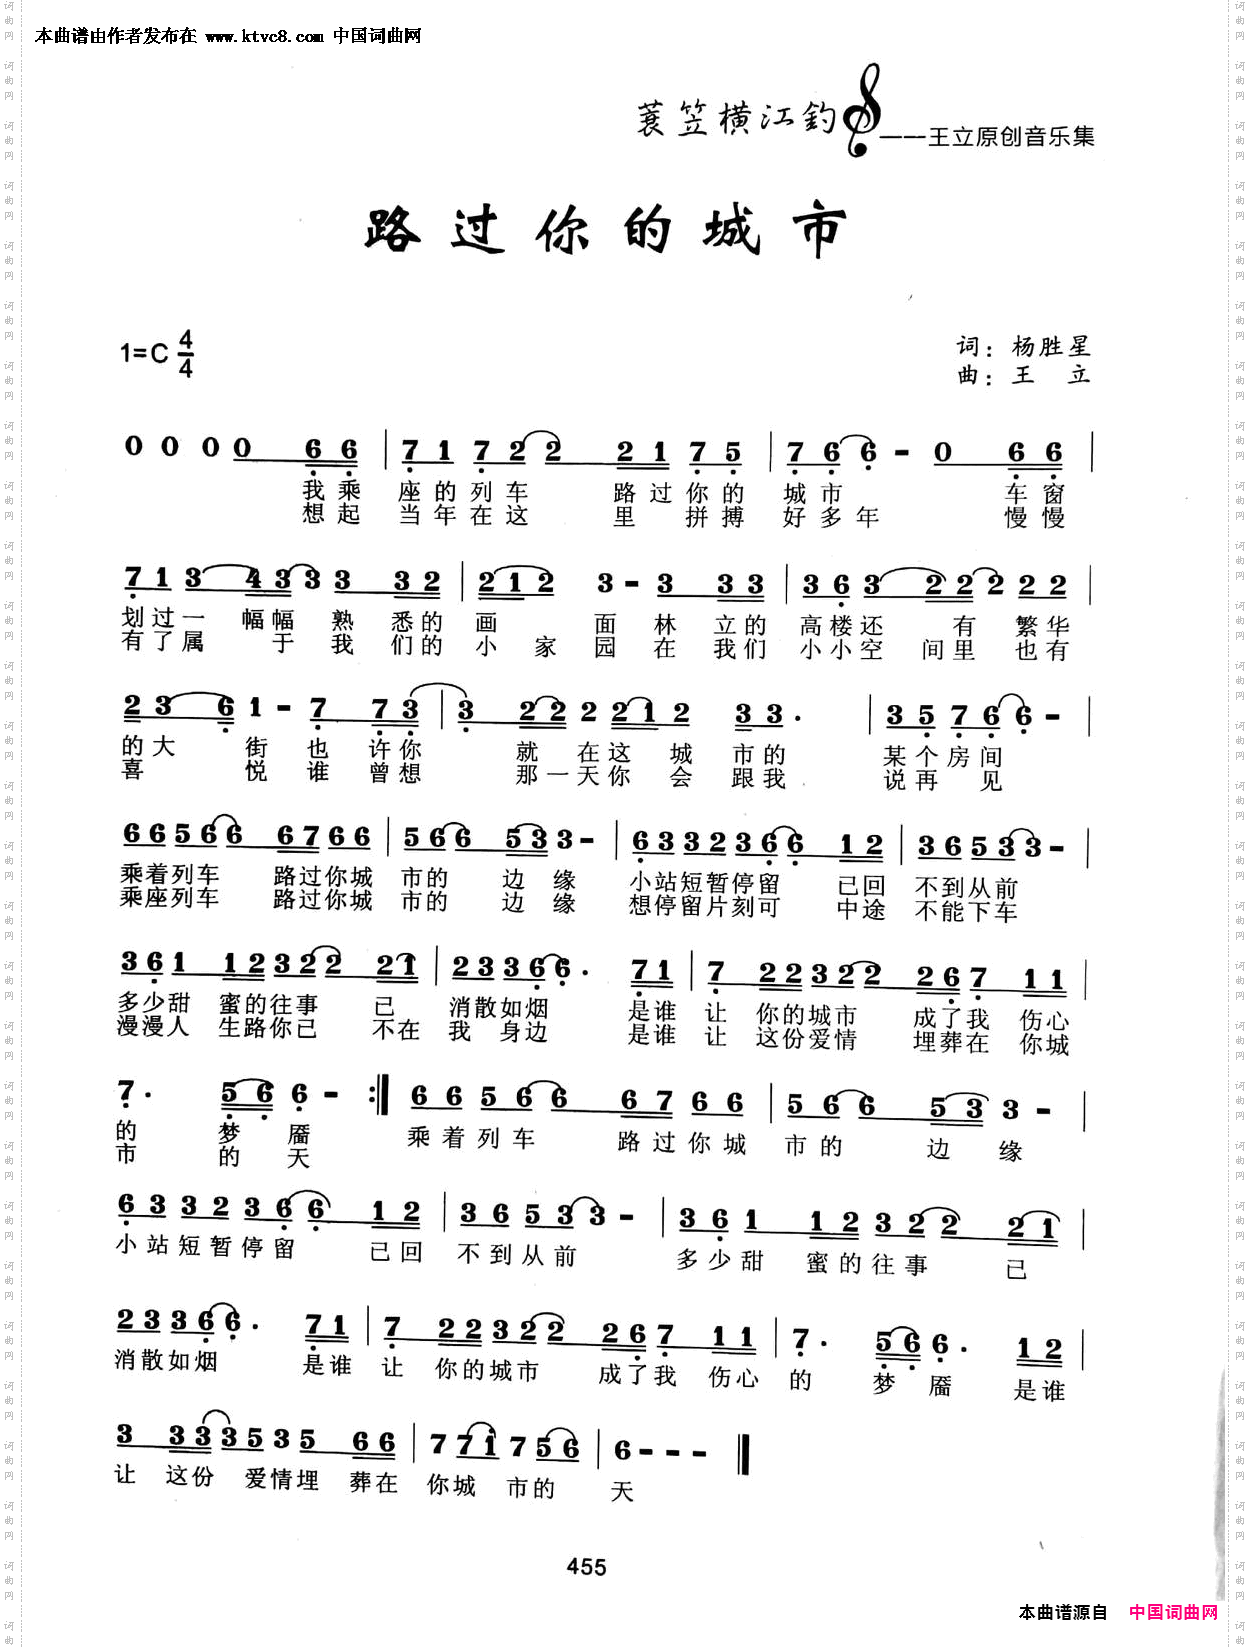 本曲谱由作者发布在 www.ktvc8.com 中国词曲网
蓑笠横江钓——王立原创音乐集
路过你的城市
1=C 4/4
词：杨胜星
曲：王 立
0 0 0 0 6 6 | 7 1 7 2 2 2 1 7 5 | 7 6 6 - 0 6 6 |
我乘 座的列车 路过你的 城市 车窗
想起 当年在这 里 拼搏 好多年 慢慢
7 1 3 4 3 3 3 3 2 | 2 1 2 3 - 3 3 3 | 3 6 3 2 2 2 2 2 |
划过一 幅幅 熟 悉的 画 面 林 立的 高楼还 有 繁华
有了属 于 我 们的 小 家 园 在 我们 小小空 间里 也有
2 3 6 1 - 7 7 3 | 3 2 2 2 2 1 2 3 3 . | 3 5 7 6 6 - |
的大 街 也 许你 就 在这 城 市的 某个房间
喜 悦 谁 曾想 那一天你 会 跟我 说再 见
6 6 5 6 6 6 7 6 6 | 5 6 6 5 3 3 - | 6 3 3 2 3 6 6 1 2 | 3 6 5 3 3 - |
乘着列车 路过你城 市的 边 缘 小站短暂停留 已回 不到从前
乘座列车 路过你城 市的 边 缘 想停留片刻可 中途 不能下车
3 6 1 1 2 3 2 2 2 1 | 2 3 3 6 6 . 7 1 | 7 2 2 3 2 2 2 6 7 1 1 |
多少甜 蜜的往事 已 消散如烟 是谁 让 你的城市 成了我 伤心
漫漫人 生路你已 不在 我 身边 是谁 让 这份爱情 埋葬在 你城
7 . 5 6 6 - :‖ 6 6 5 6 6 6 7 6 6 | 5 6 6 5 3 3 - |
的 梦 魇 乘着列车 路过你城 市的 边 缘
市 的 天
6 3 3 2 3 6 6 1 2 | 3 6 5 3 3 - | 3 6 1 1 2 3 2 2 2 1 |
小站短暂停留 已回 不到从前 多少甜 蜜的往事 已
2 3 3 6 6 . 7 1 | 7 2 2 3 2 2 2 6 7 1 1 | 7 . 5 6 6 . 1 2 |
消散如烟 是谁 让 你的城市 成了我 伤心 的 梦 魇 是谁
3 3 3 3 5 3 5 6 6 | 7 7 1 7 5 6 | 6 - - - ‖
让 这份 爱情埋 葬在 你城 市的 天
455
本曲谱源自 中国词曲网